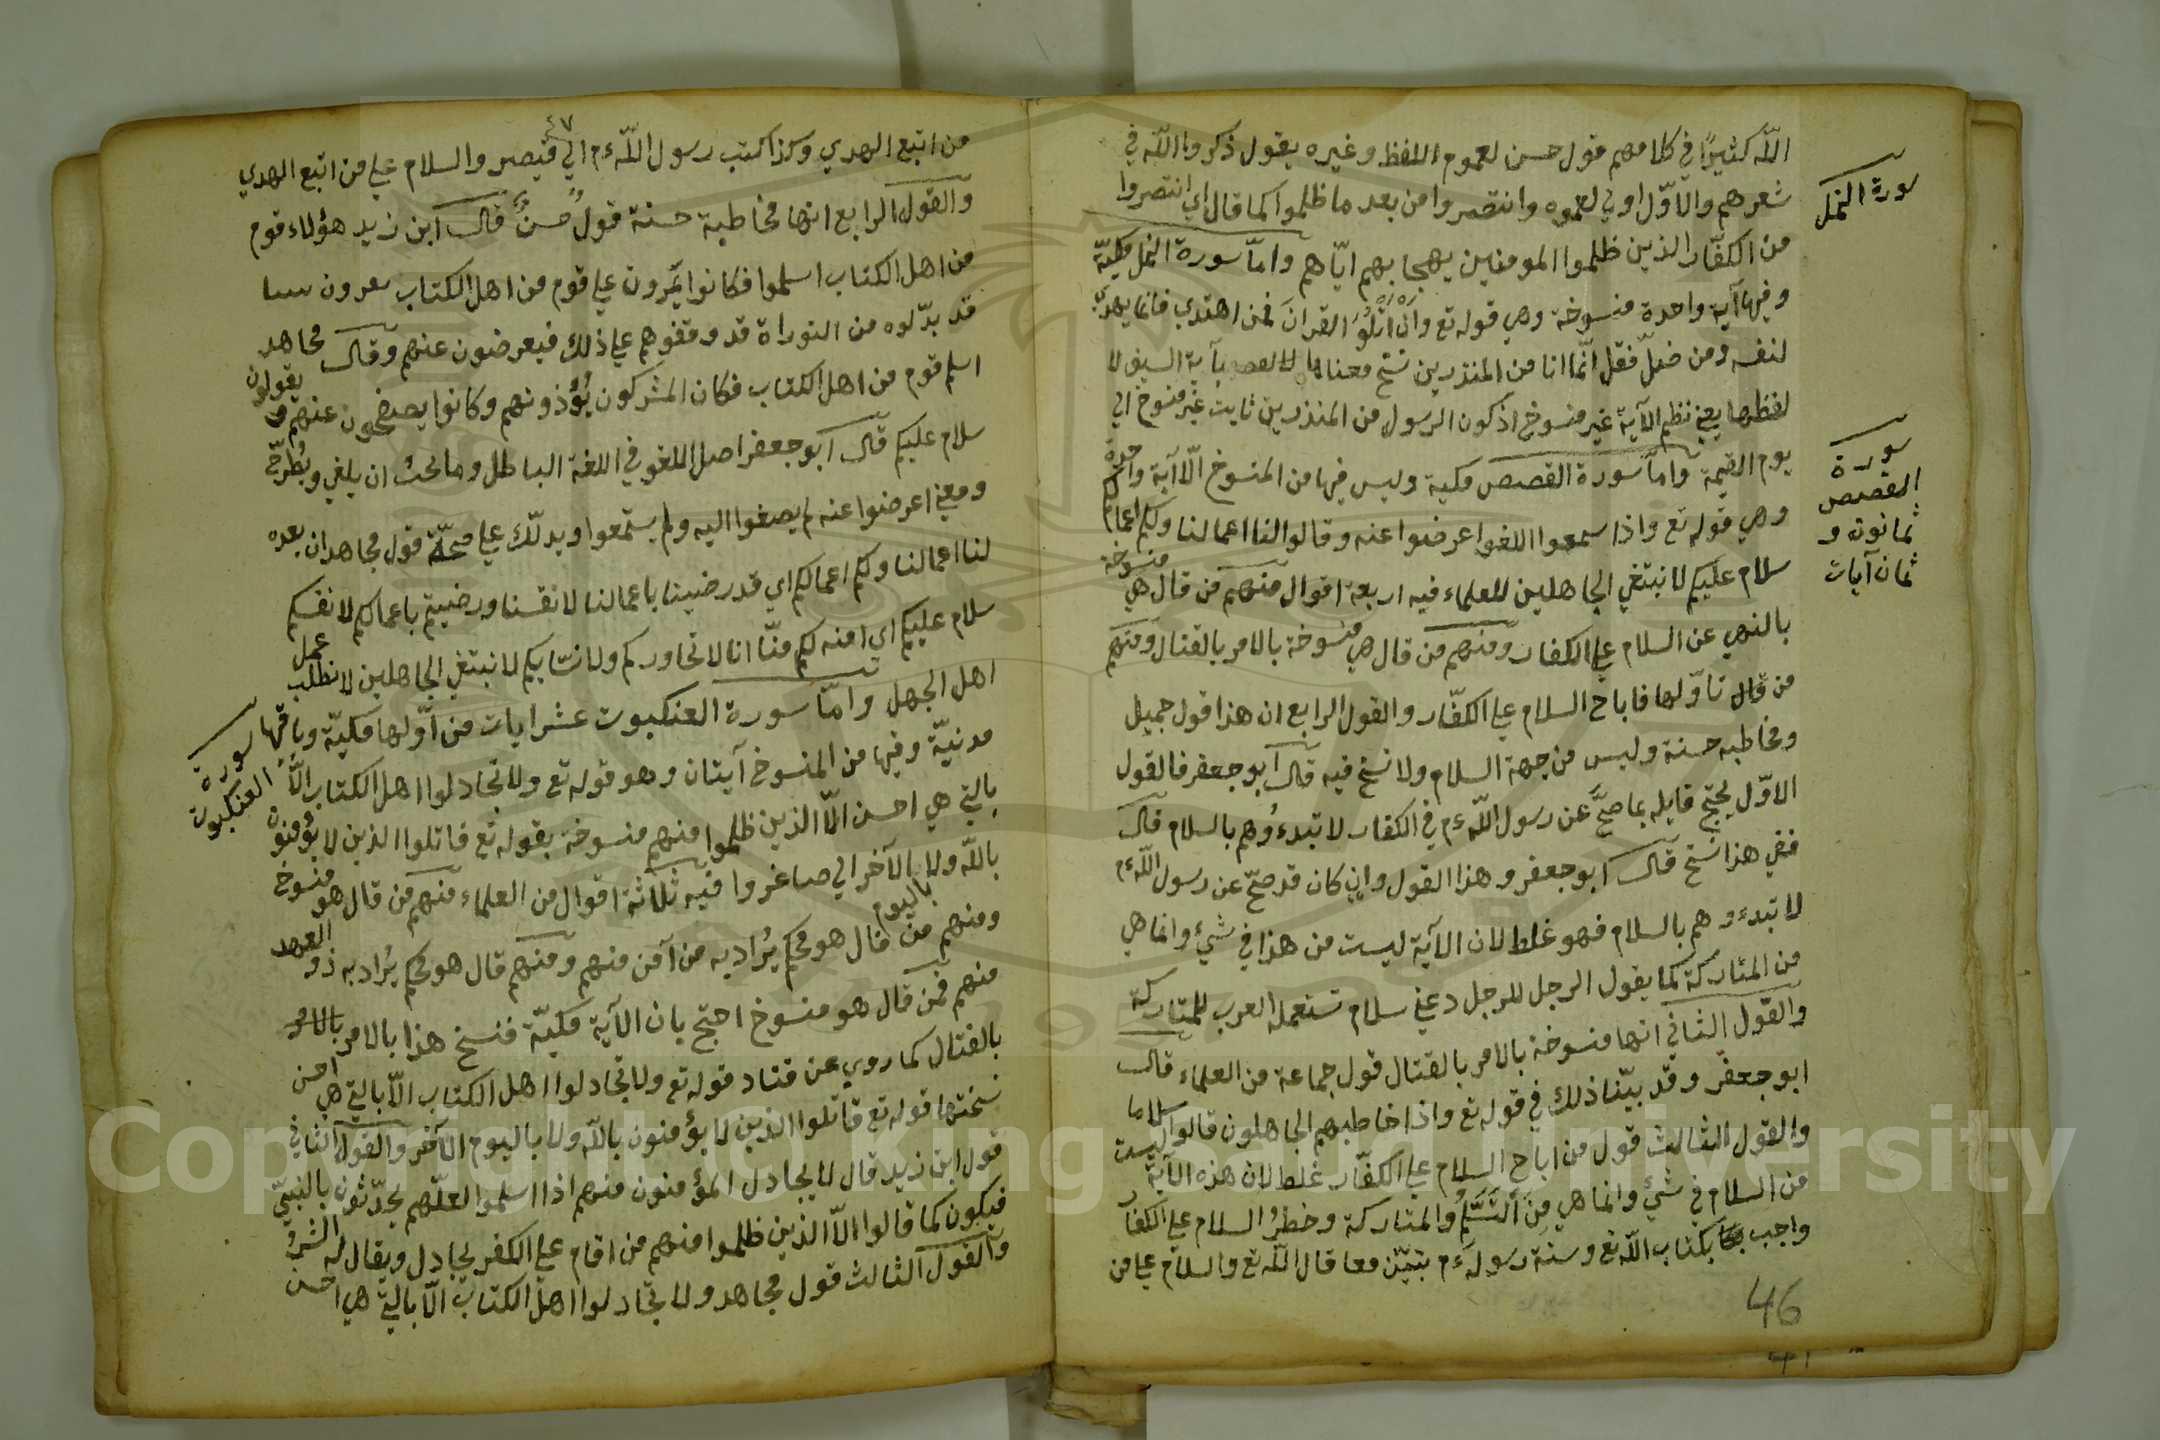 الله كثيرًا في كلامهم قول حسن لعموم اللفظ وغيره يقول ذكروا الله في
شعرهم والاوّل اولي لعمومه وانتصروا من بعد ما ظلموا كما قال اي انتصروا
من الكفّار الذين ظلموا المومنين يهجا بهم ايّاهم وامّا سورة النمل مكيّة
وفيها آية واحدة منسوخة وهي قوله تع وانْ اتْلُوَ القرانَ فمن اهتدي فانما يهدي
لنفسه ومن ضلّ فقل انّما انا من المنذرين نسخ معناها بآية السيف لا
لفظها يعني نظم الآية غير منسوخ اذ كون الرسول من المنذرين ثابت غير منسوخ الي
يوم القيمة وامّا سورة القصص مكية وليس فيها من المنسوخ الّا آية واحدة
وهي قوله تع واذا سمعوا اللغو اعرضوا عنه وقالوا لنا اعمالنا ولكم اعمالكم
سلام عليكم لا نبتغي الجاهلين للعلماء فيه اربعة اقوال منهم من قال هي منسوخة
بالنهي عن السلام علي الكفار ومنهم من قال هي منسوخة بالامر بالقتال ومنهم
من قال تاوّلها فاباح السلام علي الكفّار والقول الرابع ان هذا قول جميل
ومخاطبه حسنة وليس من جهة السلام ولا نسخ فيه قال ابو جعفر فالقول
الاوّل يحتجّ قايله بما صحَّ عن رسول الله ءم في الكفار لا تبدءُوهم بالسلام قال
ففي هذا نسخ قال ابو جعفر وهذا القول وان كان قد صحّ عن رسول الله ءم
لا تبدءوهم بالسلام فهو غلط لان الآية ليست من هذا في شيْءٍ وانما هي
من المتاركة كما يقول الرجل للرجل دعني سلام تستعمله العرب للمتاركة
والقول الثاني انها منسوخة بالامر بالقتال قول جماعة من العلماء قال
ابو جعفر وقد بيّنا ذلك في قوله تع واذا خاطبهم الجاهلون قالوا سلاما
والقول الثالث قول من اباح السلام علي الكفّار غلط لان هذه الآية ليست
من السلام في شئ وانما هي مِنَ التَسَلُّمِ والمتاركة وحظرُ السلام علي الكفار
واجب بكتاب الله تع وسنة رسوله ءم بتبيّن معا قال الله تع والسلام علي من
سورة النمل
سورة
القصص
ثمانون و
ثمان آيات
46
٤٧
من اتبع الهدي وكذا كتب رسول الله ءم الي قيصر والسلام علي من اتبع الهدي
والقول الرابع انها مخاطبة حسنة قولٌ حسنٌ قال ابن زيد هؤلاء قوم
من اهل الكتاب اسلموا فكانوا يمرّون علي قوم من اهل الكتاب
قد بدّلوه من التوراة قد وقفوهم علي ذلك فيعرضون عنهم وقال مجاهد
اسلم قوم من اهل الكتاب فكان المشركون يُؤذونهم وكانوا يصفحون عنهم ويقولون
سلام عليكم قال ابو جعفر اصل اللغو في اللغة الباطل وما يجبُ ان يلغي ويُطرح
ومعني اعرضوا عنه لم يصغوا اليه ولم يستمعوا ويدلّك علي صحّة قول مجاهد ان بعده
لنا اعمالنا ولكم اعمالكم اي قد رضينا باعمالنا لانفسنا ورضيتم باعمالكم لانفسكم
سلام عليكم اي امنه لكم منّا انا لا نحاوركم ولا نسّابكم لا نبتغي الجاهلين لا نطلب عمل
اهل الجهل وامّا سورة العنكبوت عشر ايات من اوّلها مكيّة وباقيها
مدنيّة وفيها من المنسوخ آيتان وهو قوله تع ولا تجادلوا اهل الكتاب الّا
بالتي هي احسن الّا الذين ظلموا منهم منسوخة بقوله تع قاتلوا الذين لا يؤمنون
بالله ولا باليوم الآخر الي صاغروا فيه ثلاثة اقوال من العلماء منهم من قال هو منسوخ
ومنهم من قال هو محكم يُراد به من آمن منهم ومنهم قال هو محكم يُراد به ذو العهد
منهم فمن قال هو منسوخ احتجّ بان الآية مكيّة فنسخ هذا بالامر بالامر
بالقتال كما روي عن قتاد قوله تع ولا تجادلوا اهل الكتاب الّا بالتي هي احسن
نسختها قوله تع قاتلوا الذين لا يؤمنون بالله ولا باليوم الآخر والقول الثاني
قول ابن زيد قال لا يجادل المؤمنون منهم اذا اسلموا لعلّهم يحدّثون بالنبيّ
فيكون كما قالوا الّا الذين ظلموا منهم من اقام علي الكفر يجادل ويقال له الشرُّ
والقول الثالث قول مجاهد ولا تجادلوا اهل الكتاب الّا بالتي هي احسن
سورة
العنكبوت
Copyright © King Saud University